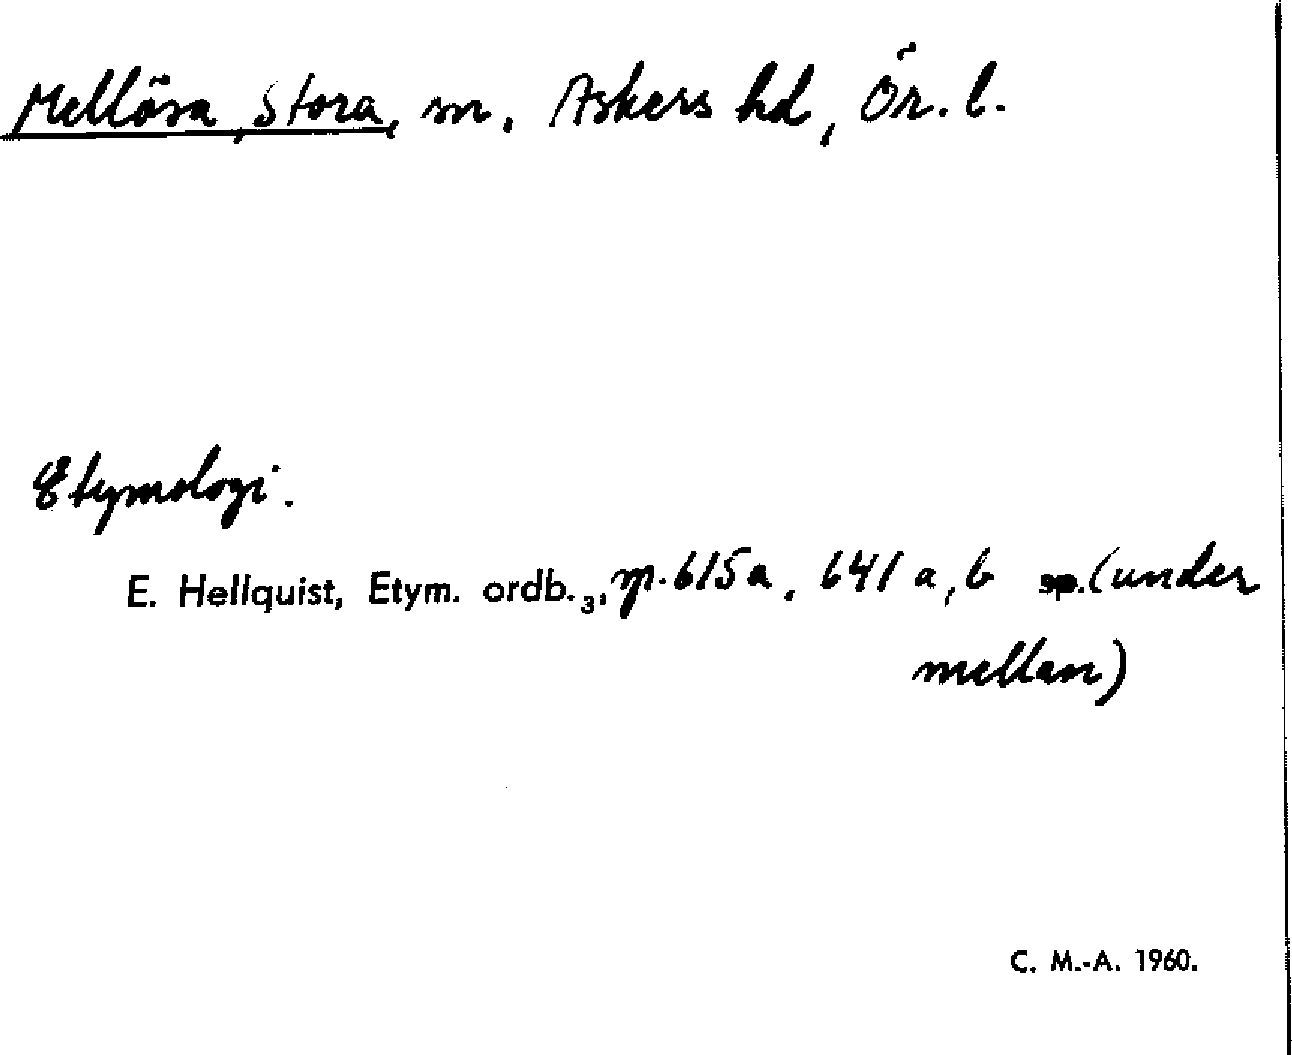 Mellösa, Stora, sn. Askers hd, Ör. l.
Etymologi.
E. Hellquist, Etym. ordb.3, sp. 615 a, 641 a, b sp. (under
mellan)
C. M.-A. 1960.